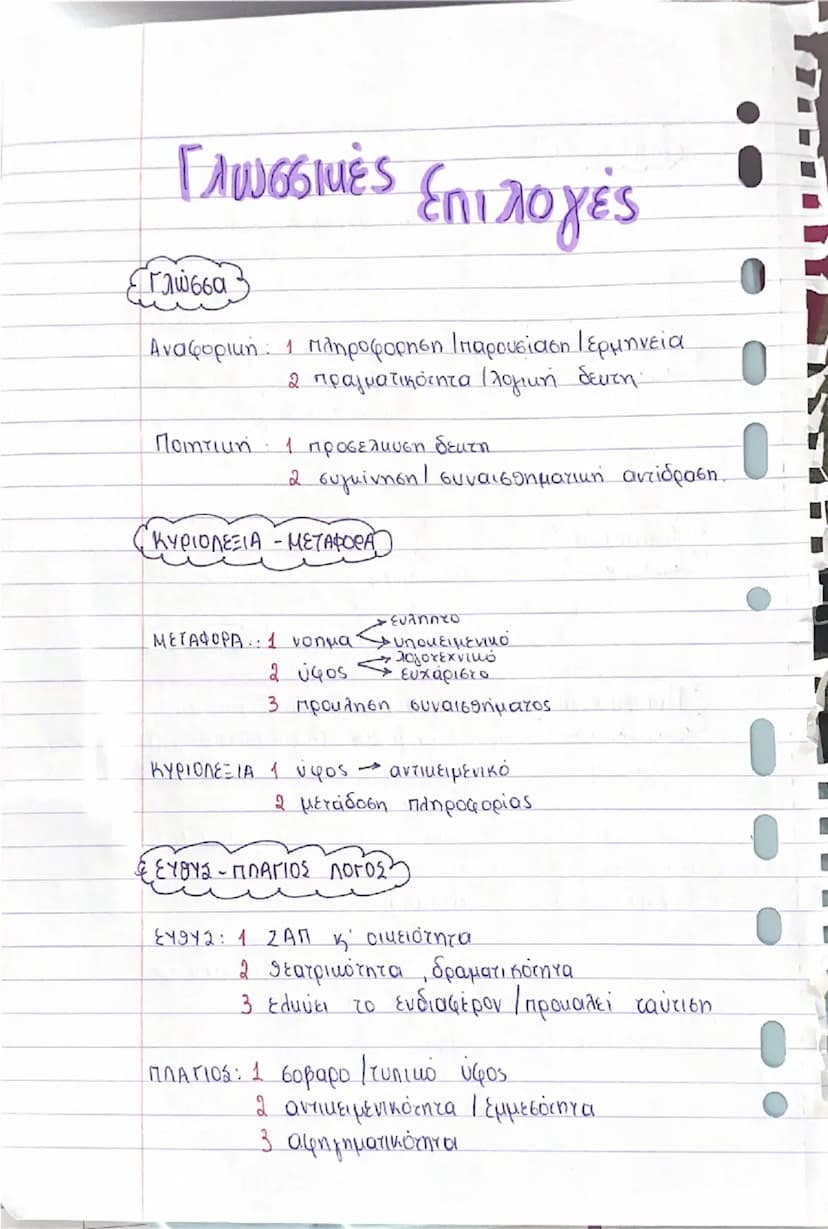 Γλωσσικές Επιλογές
Γλώσσα
Αναφορική: 1 πληροφορηση / παρουσίαση / ερμηνεία
2 πραγματικότητα / λογική δεκτη
Ποιητική: 1 προσελκυση δεκτη
2 συγκίνηση / συναισθηματική αντίδραση.
ΚΥΡΙΟΛΕΞΙΑ - ΜΕΤΑΦΟΡΑ
ευληπτο
ΜΕΤΑΦΟΡΑ.: 1 νοημα υποκειμενικό
λογοτεχνικό
2 ύφος ευχάριστο
3 προκληση συναισθήματος
ΚΥΡΙΟΛΕΞΙΑ 1 ύφος → αντικειμενικό
2 μετάδοση πληροφορίας
ΕΥΘΥΣ - ΠΛΑΓΙΟΣ ΛΟΓΟΣ
ΕΥΘΥΣ: 1 ΖΑΠ κ' οικειότητα
2 θεατρικότητα, δραματικότητα
3 ελκύει το ενδιαφέρον / προκαλεί ταύτιση
ΠΛΑΓΙΟΣ: 1 σοβαρο / τυπικό ύφος
2 αντικειμενικότητα / εμμεσότητα
3 αφηγηματικότητα